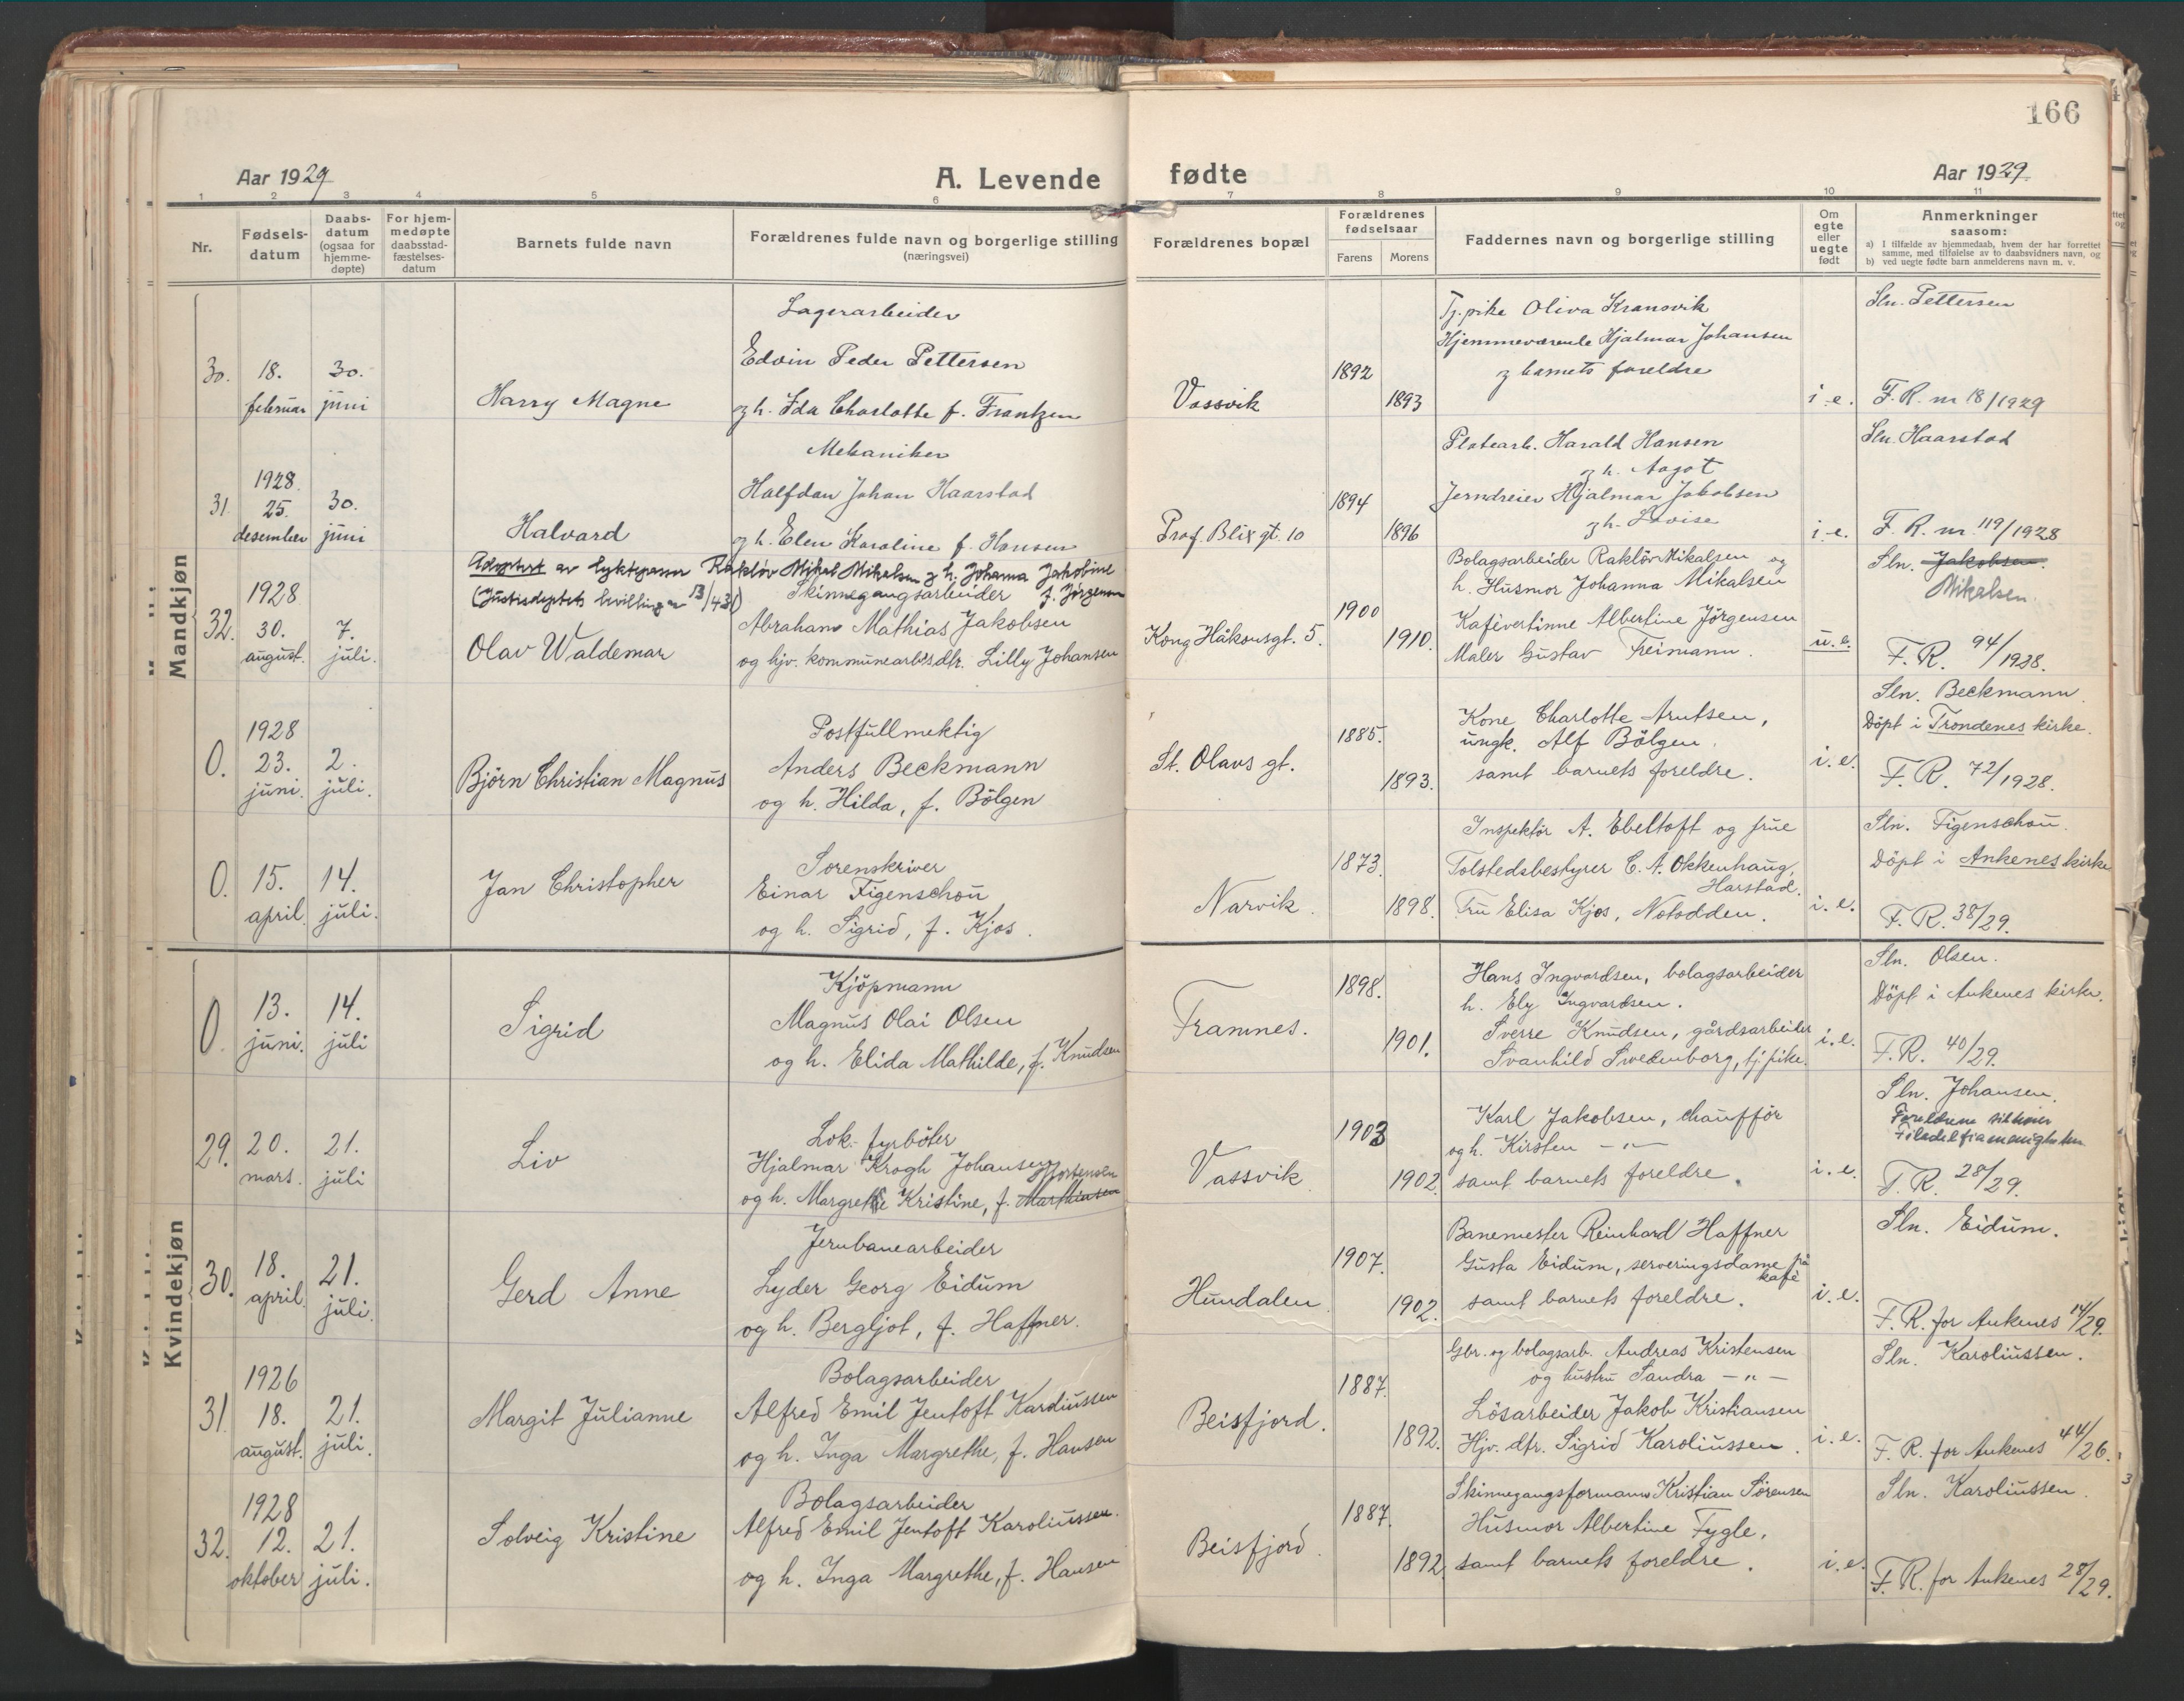 166
Aar 1929
A. Levende fødte
Aar 1929.
1 2 3 4 5 6 7 8 9 10 11
Nr.
Fødsels-
datum
Daabs-
datum
(ogsaa for
hjemme-
døpte)
For hjem-
medøpte
daabsstad-
fæstelses-
datum
Barnets fulde navn
Forældrenes fulde navn og borgerlige stilling
(næringsvei)
Forældrenes bopæl
Forældrenes
fødselsaar
Farens Morens
Faddernes navn og borgerlige stilling
Om
egte
eller
uegte
født
Anmerkninger
saasom:
a) I tilfælde av hjemmedaab, hvem der har forrettet
samme, med tilføielse av to daabsvidners navn, og
b) ved uegte fødte barn anmelderens navn m. v.
Mandkjøn
30.
18.
februar
30.
juni
Harry Magne
Lagerarbeider
Edvin Peder Pettersen
og h. Ida Charlotte f. Frantzen
Vassvik
1892
1893
Tj. pike Oliva Kransvik
Hjemmeværende Hjalmar Johansen
og barnets foreldre
i. e.
Sln. Pettersen
F. R. nr 18/1929
31.
1928.
25.
desember
30.
juni
Halvard
Mekaniker
Halfdan Johan Haarstad
og h. Elen Karoline f. Hansen
Prof. Blix gt. 10
1894
1896
Platearb. Harald Hansen
og h. Aagot
Jerndreier Hjalmar Jakobsen
og h. Lovise
i. e.
Sln. Haarstad
F. R. nr. 119/1928
Adoptert av lyktepasser Raklöv Mikal Mikalsen og h. Johanna Jakobine
f. Jørgensen
32.
1928
30.
august.
7.
juli.
Olav Waldemar
Skinnegangsarbeider
Abraham Mathias Jakobsen
og hjv. kommunearb.s dtr. Lilly Johansen
Kong Håkonsgt. 5.
1900
1910.
Bolagsarbeider Raklöv Mikalsen og
h. Husmor Johanna Mikalsen
Kafévertinne Albertine Jörgensen
Maler Gustav Freimann.
u. e.
Sln. Jakobsen.
Mikalsen.
F. R. 94/1928.
0.
1928
23.
juni.
2.
juli.
Björn Christian Magnus
Postfullmektig
Anders Beckmann
og h. Hilda, f. Bölgen
St. Olavs gt.
1885.
1893.
Kone Charlotte Arntsen,
ungk. Alf Bölgen.
samt barnets foreldre.
i. e.
Sln. Beckmann
Döpt i Trondenes kirke.
F. R. 72/1928.
0.
15.
april
14.
juli.
Jan Christopher
Sorenskriver
Einar Figenschou
og h. Sigrid, f. Kjos.
Narvik.
1873.
1898.
Inspektör A. Ebeltoft og frue
Tolstedsbestyrer C. A. Okkenhaug,
Harstad.
Fru Elisa Kjos, Notodden.
i. e.
Sln. Figenschou.
Döpt i Ankenes kirke
F. R. 38/29.
Kvindekjøn
0.
13.
juni.
14.
juli
Sigrid
Kjöpmann
Magnus Olai Olsen
og h. Elida Mathilde, f. Knudsen
Framnes.
1898.
1901.
Hans Ingvardsen, bolagsarbeider
h. Ely Ingvardsen.
Sverre Knudsen, gårdsarbeider
Svanhild Swedenborg, tj. pike.
i. e.
Sln. Olsen.
Döpt i Ankenes kirke.
F. R. 40/29.
29.
20.
mars.
21.
juli
Liv
Lok. fyrböter
Hjalmar Krogh Johansen
Mortensen
og h. Margrethe Kristine, f. Marthiasen
Vassvik
1903
1902.
Karl Jakobsen, chaufför
og h. Kirsten -"-
samt barnets foreldre.
i. e.
Sln. Johansen.
Foreldrene tilhører
Filadelfiamenigheten
F. R. 28/29.
30.
18.
april
21.
juli.
Gerd Anne
Jernbanearbeider
Lyder Georg Eidum
og h. Bergljot, f. Haffner.
Hundalen
1907.
1902.
Banemester Reinhard Haffner
Gusta Eidum, serveringsdame på
kafé
samt barnets foreldre.
i. e.
Sln. Eidum.
F. R. for Ankenes 14/29.
31.
1926
18.
august.
21.
juli.
Margit Julianne
Bolagsarbeider
Alfred Emil Jentoft Karoliussen
og h. Inga Margrethe, f. Hansen
Beisfjord.
1887.
1892.
Gbr. og bolagsarb. Andreas Kristensen
og hustru Sandra -"-
Lösarbeider Jakob Kristiansen
Hjv. dtr. Sigrid Karoliussen.
i. e.
Sln. Karoliussen.
F. R. for Ankenes 44/26.
32.
1928
12.
oktober
21.
juli.
Solveig Kristine
Bolagsarbeider
Alfred Emil Jentoft Karoliussen.
og h. Inga Margrethe, f. Hansen
Beisfjord.
1887.
1892.
Skinnegangsformann Kristian Sörensen
Husmor Albertine Fygle,
samt barnets foreldre.
i. e.
Sln. Karoliussen.
F. R. for Ankenes 28/29.